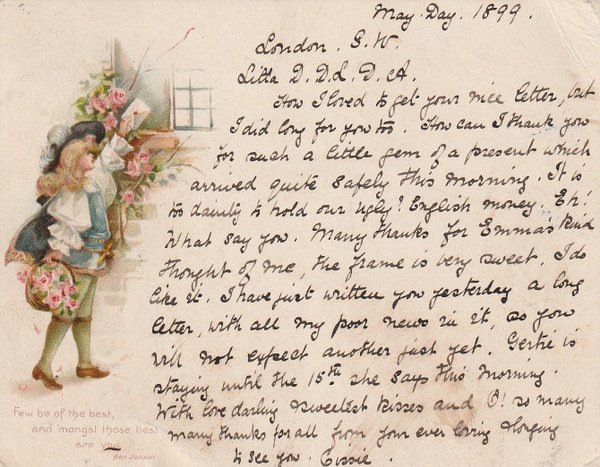 May. Day. 1899.
London. S. W.
Litta D. D. d. D. A.
How I loved to get your nice letter, but
I did long for you too. How can I thank you
for such a little gem of a present which
arrived quite safely this morning. It is
too dainty to hold our ugly? English money. Eh!
What say you. Many thanks for Emma's kind
thought of me, the frame is very sweet. I do
like it. I have just written you yesterday a long
letter, with all my poor news in it, so you
will not expect another just yet. Gertie is
staying until the 15th she says this Morning.
With love darling sweetest kisses and O! so many
many thanks for all from your ever loving longing
to see you. Cissie.
Few be of the best,
and 'mongst those best
are you
Ben Jonson